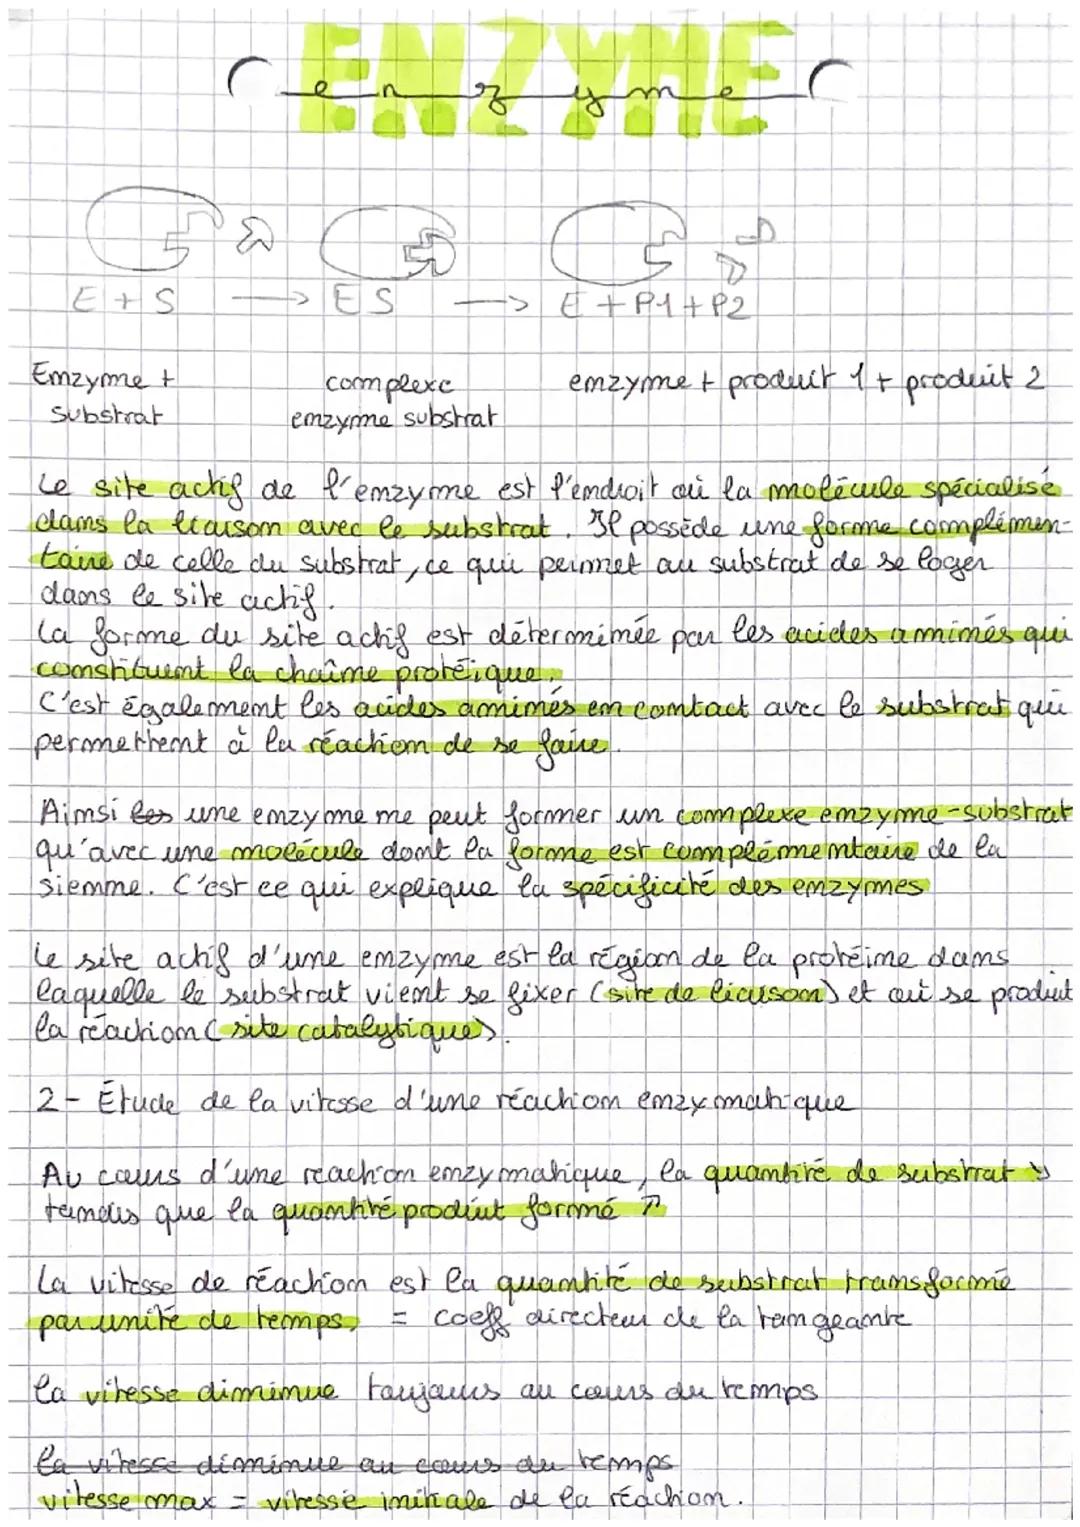 ENZYME
enzyme
E + S → ES → E + P1 + P2
Enzyme + complexe enzyme + produit 1 + produit 2
substrat enzyme substrat
Le site actif de l'enzyme est l'endroit où la molécule spécialisé
dans la liaison avec le substrat. Il possède une forme complémen-
taire de celle du substrat, ce qui permet au substrat de se loger
dans le site actif.
La forme du site actif est déterminée par les acides aminés qui
constituent la chaîne protéique.
C'est également les acides aminés en contact avec le substrat qui
permettent à la réaction de se faire.
Ainsi les une enzyme ne peut former un complexe enzyme-substrat
qu'avec une molécule dont la forme est complémentaire de la
sienne. C'est ce qui explique la spécificité des enzymes
Le site actif d'une enzyme est la région de la protéine dans
laquelle le substrat vient se fixer (site de liaison) et où se produit
la réaction (site catalytique).
2- Étude de la vitesse d'une réaction enzymatique
Au cours d'une reaction enzymatique, la quantité de substrat ↘
tandis que la quantité produit formé ↗
La vitesse de réaction est la quantité de substrat transformé
par unité de temps, = coeff directeur de la tangeante
la vitesse diminue toujours au cours du temps
la vitesse diminue au cours du temps
vitesse max = vitesse initiale de la réaction.